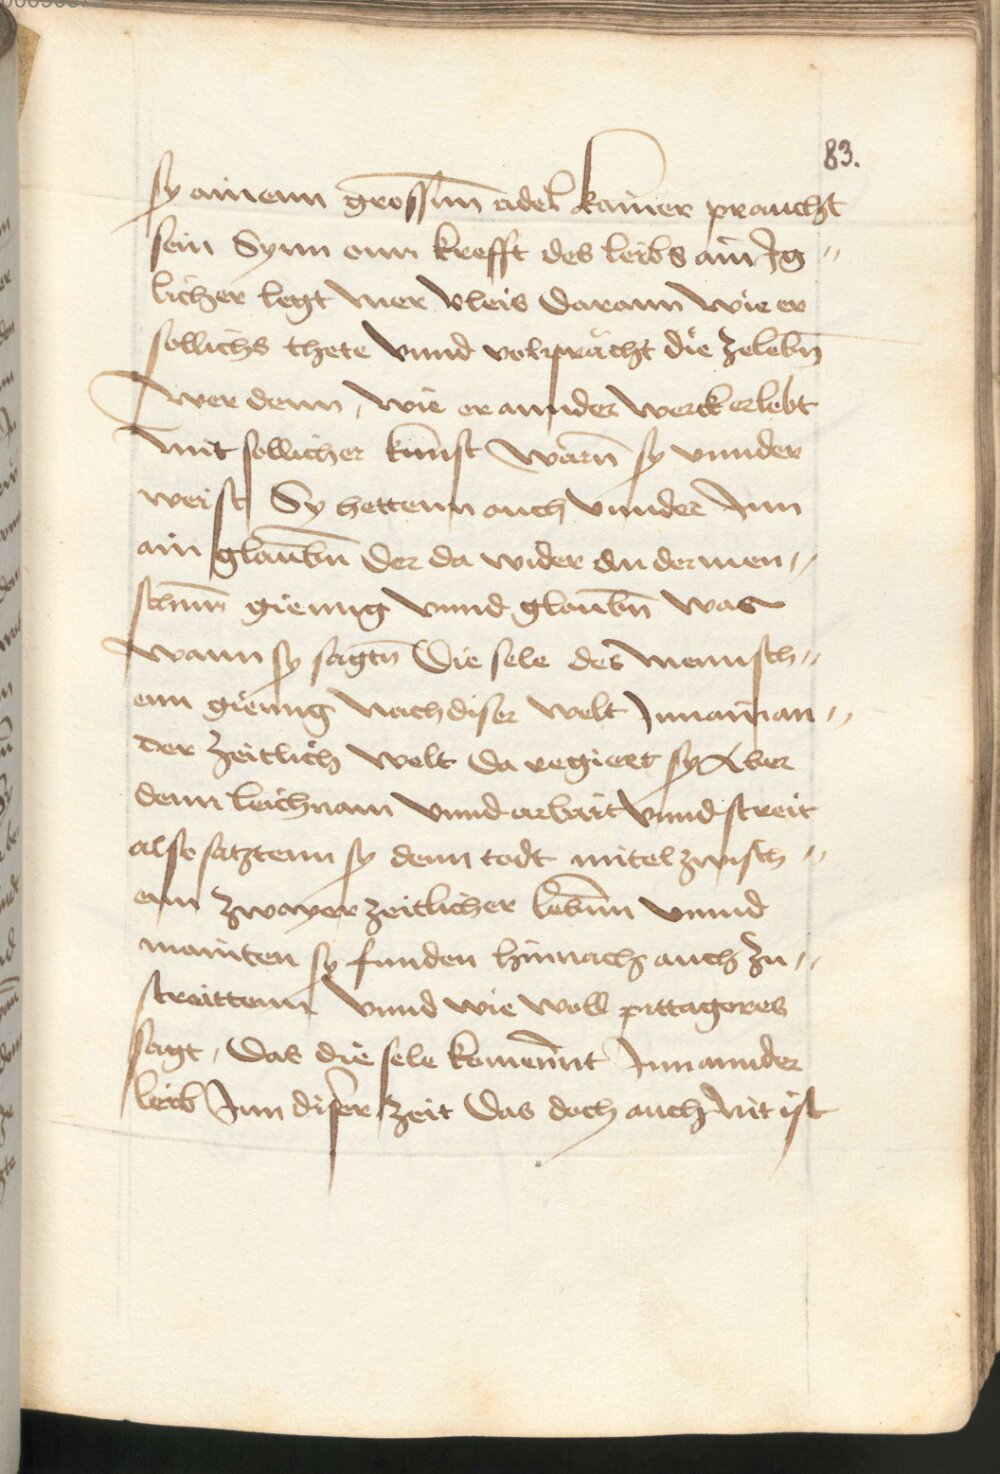 83.
sy ainenn grossm̄ adel kainer praucht
sein Synn onn krefft des leibs ain Ig〃
licher legt mer vleis darann wie er
sollichs thete vnnd volpracht die zelebn̄
wer denn, wie er annder werck erlebt
mit sollicher kunst warn̄ sy vnnder
weist Sy hettenn auch vnnder Inn
ain glaubn̄ der da wider ander men〃
schnn̄ gienng vnnd glaubn̄ was
wann sy sagtn̄ Die sele des mennsch〃
enn gienng nach diser welt Inn ain an〃
der zeitlich welt da regiert sy Aber
denn leichnam vnnd arbait vnnd streit
also satztenn sy denn todt mitel zwisch〃
enn zwayer zeitlicher lebnn̄ vnnd
mainten sy funden hinnach auch zu〃
streittenn vnnd wie woll pittagores
sagt, Das die sele komennt Inn annder
leib Inn diser zeit Das doch auch nit ist